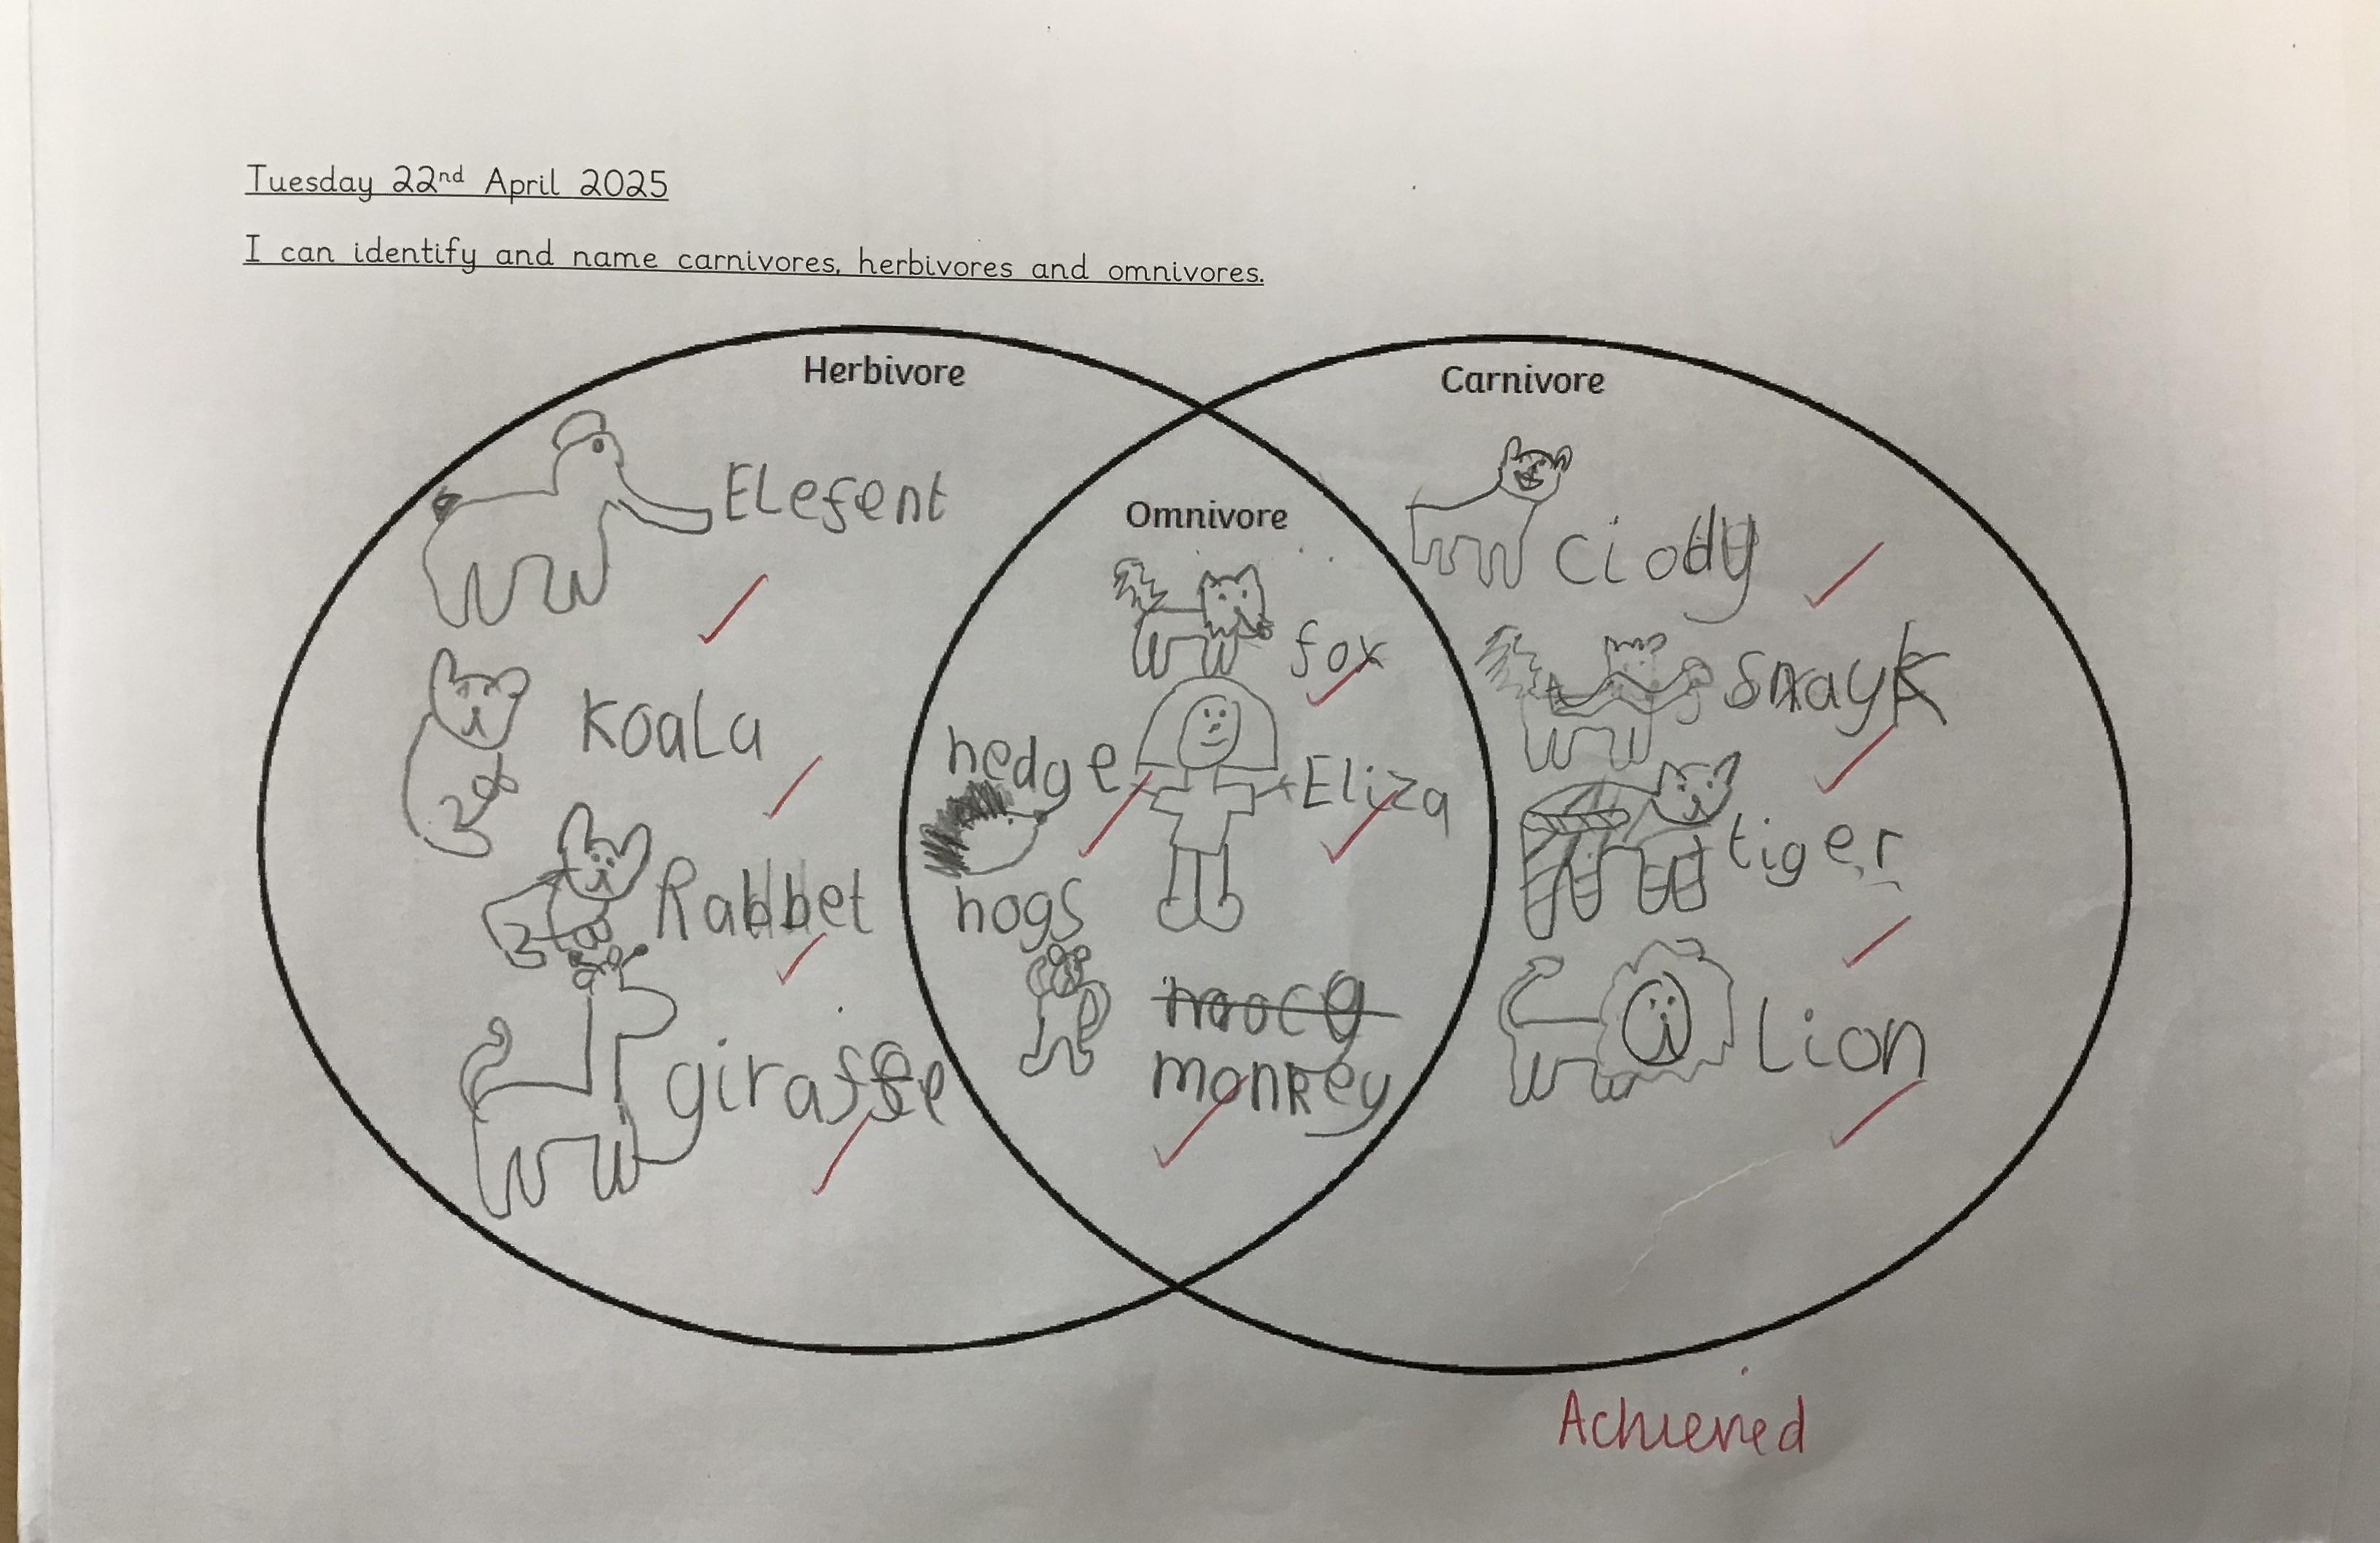 Tuesday 22nd April 2025
I can identify and name carnivores, herbivores and omnivores.
Herbivore
Elefent
Koala
Rabbet
giraffe
Omnivore
fox
hedge
hogs
Eliza
monkey
Carnivore
ciody
snayk
tiger
Lion
Achieved